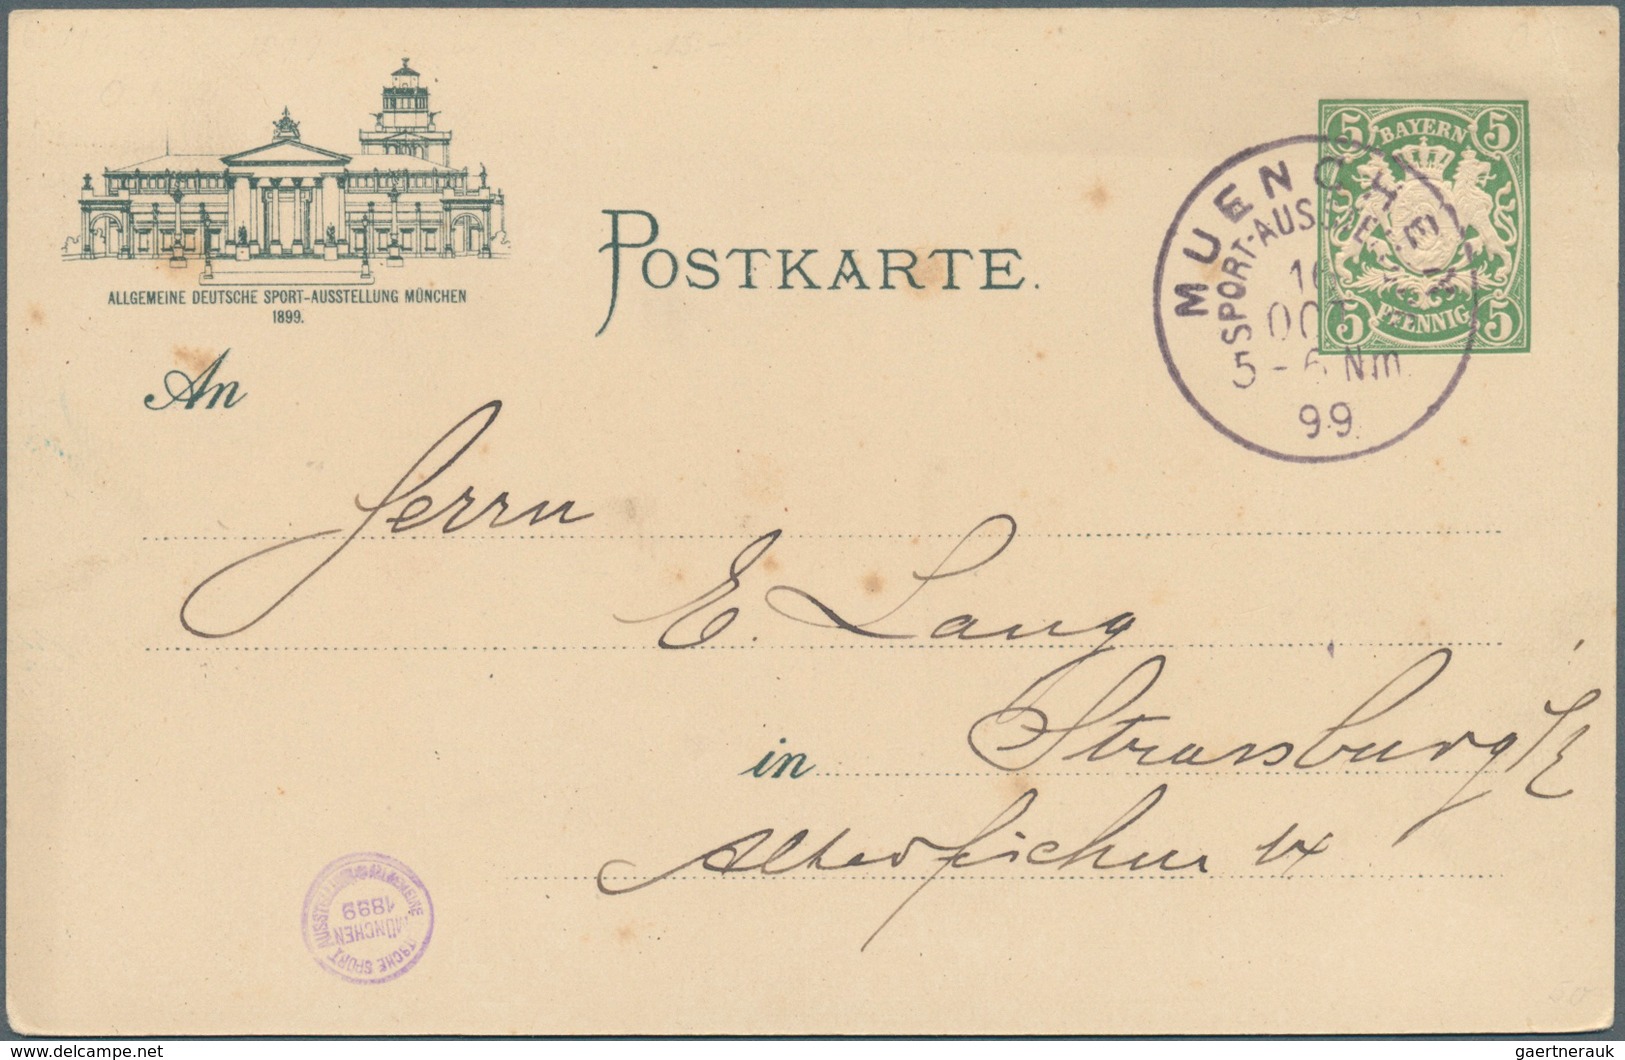 ALLGEMEINE DEUTSCHE SPORT-AUSSTELLUNG MÜNCHEN
1899.
POSTKARTE.
5 BAYERN 5
5 PFENNIG 5
MUENCHEN
SPORT-AUSSTELLUNG
16
OCT
5-6 Nm
99
An
Herrn
E. Lang
in Strassburg i/E
14
MÜNCHEN
1899
AUSSTELLUNG
SPORT
http://www.delcampe.net
gaertnerauk